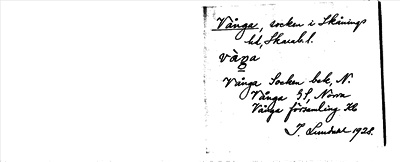 Vånga, socken i Skånings
hd, Skarab. l.
våŋa
Vånga Socken bek, N.
Vånga GS, Norra
Vånga församling Hb
I. Lundahl 1928.